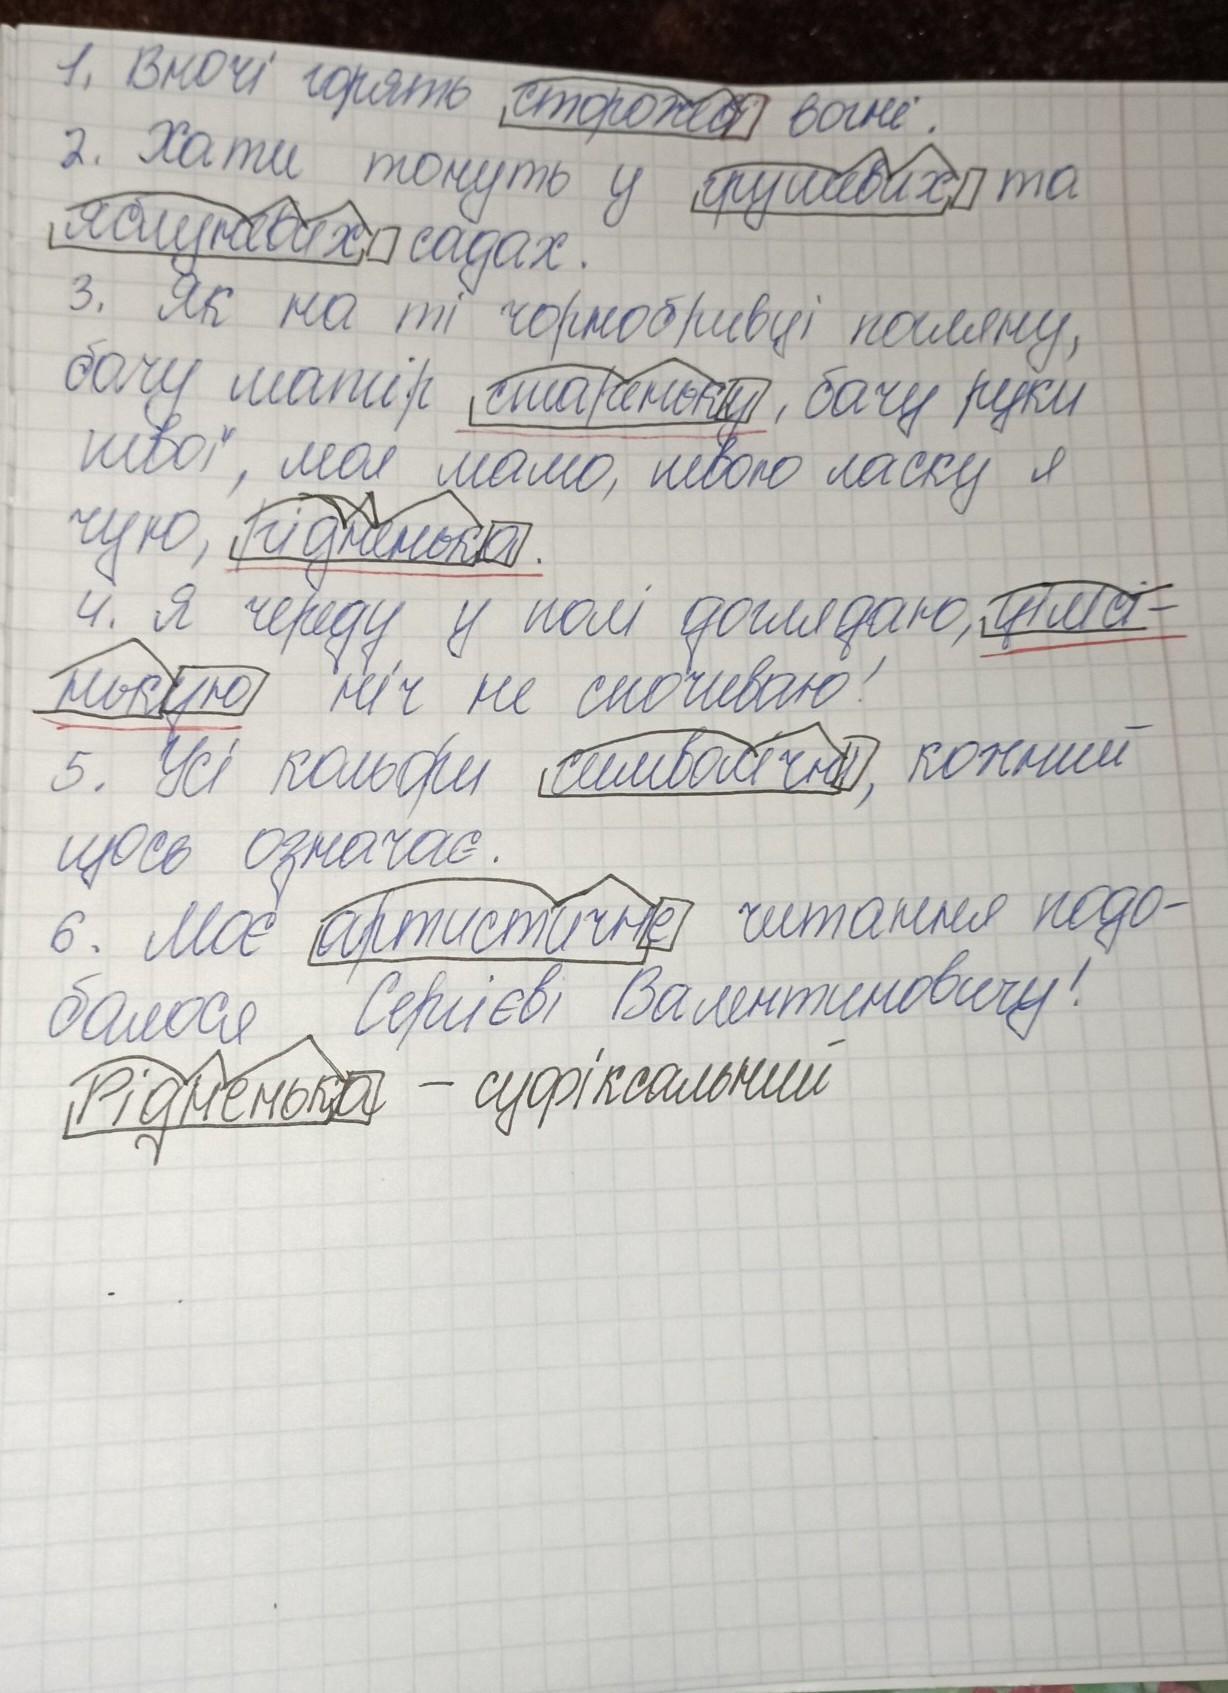 1. Вночі горять сторожові вогні.
2. Хати тонуть у грушевих та
яблуневих садах.
3. Як на ті чорнобривці погляну,
бачу матір стареньку, бачу руки
твої, моя мамо, твою ласку я
чую, рідненька.
4. Я череду у полі доглядаю, цілісі-
нькую ніч не спочиваю!
5. Усі кольори символічні, кожний
щось означає.
6. Моє артистичне читання подо-
балося Сергієві Валентиновичу!
Рідненька – суфіксальний